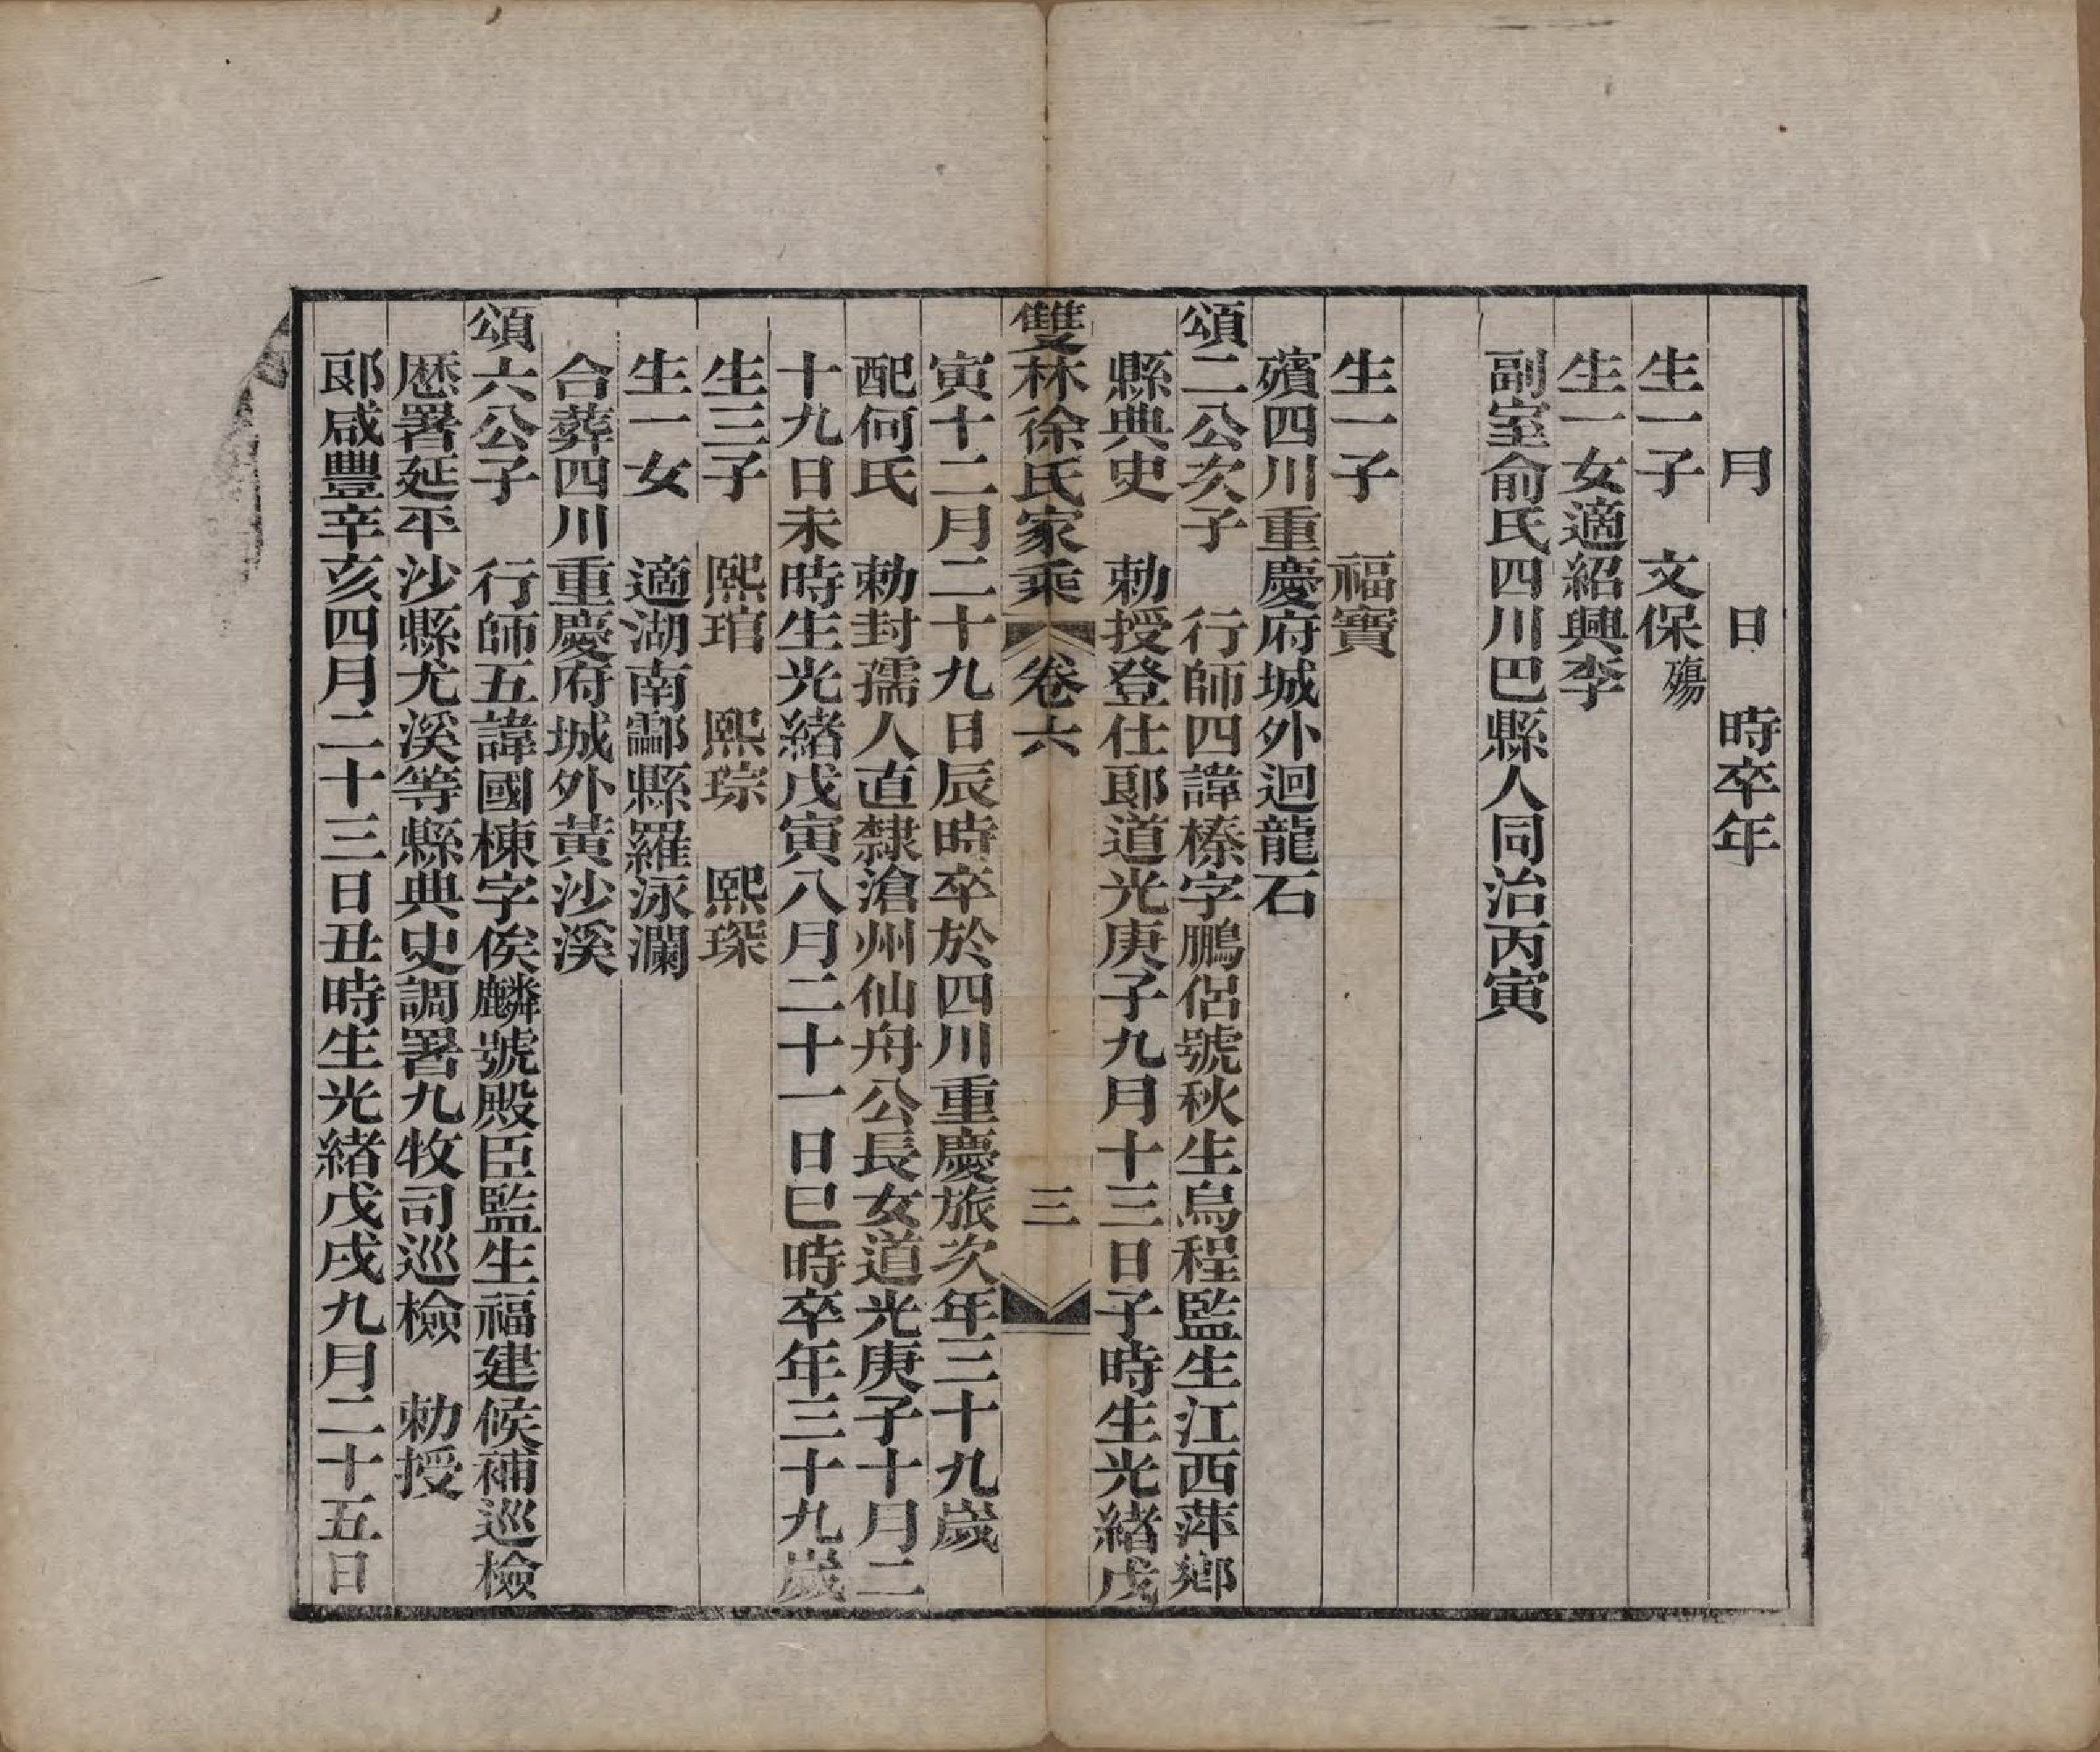 月　　日　時卒年
生一子　文保殤
生一女適紹興李
副室俞氏四川巴縣人同治丙寅
生一子　福寶
殯四川重慶府城外迴龍石
頌二公次子　行師四諱榛字鵬侶號秋生烏程監生江西萍鄉
縣典史　勅授登仕郎道光庚子九月十三日子時生光緒戊
雙林徐氏家乘　卷六　三
寅十二月二十九日辰時卒於四川重慶旅次年三十九歲
配何氏　勅封孺人直隸滄州仙舟公長女道光庚子十月二
十九日未時生光緒戊寅八月二十一日巳時卒年三十九歲
生三子　熙琯　熙琮　熙琛
生一女　適湖南酃縣羅泳瀾
合葬四川重慶府城外黃沙溪
頌六公子　行師五諱國棟字俟麟號殿臣監生福建候補巡檢
歷署延平沙縣尤溪等縣典史調署九牧司巡檢　勅授
郎咸豐辛亥四月二十三日丑時生光緒戊戌九月二十五日